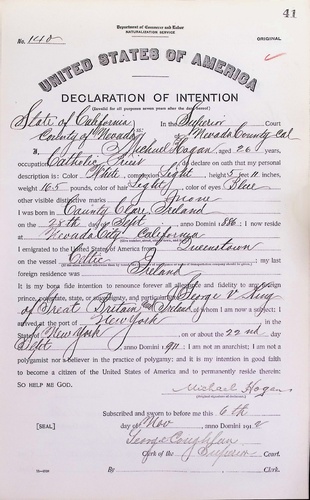 41
Department of Commerce and Labor
NATURALIZATION SERVICE
No. 140
ORIGINAL
UNITED STATES OF AMERICA
DECLARATION OF INTENTION
(Invalid for all purposes seven years after the date hereof)
State of California
In the Superior Court
County of Nevada ss:
of Nevada County Cal
I, Michael Hogan, aged 26 years,
occupation Catholic Priest, do declare on oath that my personal
description is: Color White, complexion Light, height 5 feet 11 inches,
weight 165 pounds, color of hair Light, color of eyes Blue
other visible distinctive marks None
I was born in County Clare, Ireland
on the 25th day of Sept, anno Domini 1886; I now reside
at Nevada City California
I emigrated to the United States of America from Queenstown
on the vessel Celtic; my last
foreign residence was Ireland
It is my bona fide intention to renounce forever all allegiance and fidelity to any foreign
prince, potentate, state, or sovereignty, and particularly to George V King
of Great Britain and Ireland, of whom I am now a subject; I
arrived at the port of New York, in the
State of New York on or about the 22nd day
Sept, anno Domini 1911; I am not an anarchist; I am not a
polygamist nor a believer in the practice of polygamy; and it is my intention in good faith
to become a citizen of the United States of America and to permanently reside therein:
SO HELP ME GOD.
Michael Hogan
Subscribed and sworn to before me this 6th
[SEAL]
day of Nov, anno Domini 1912
George Coughlan
Clerk of the Superior Court.
By , Clerk.